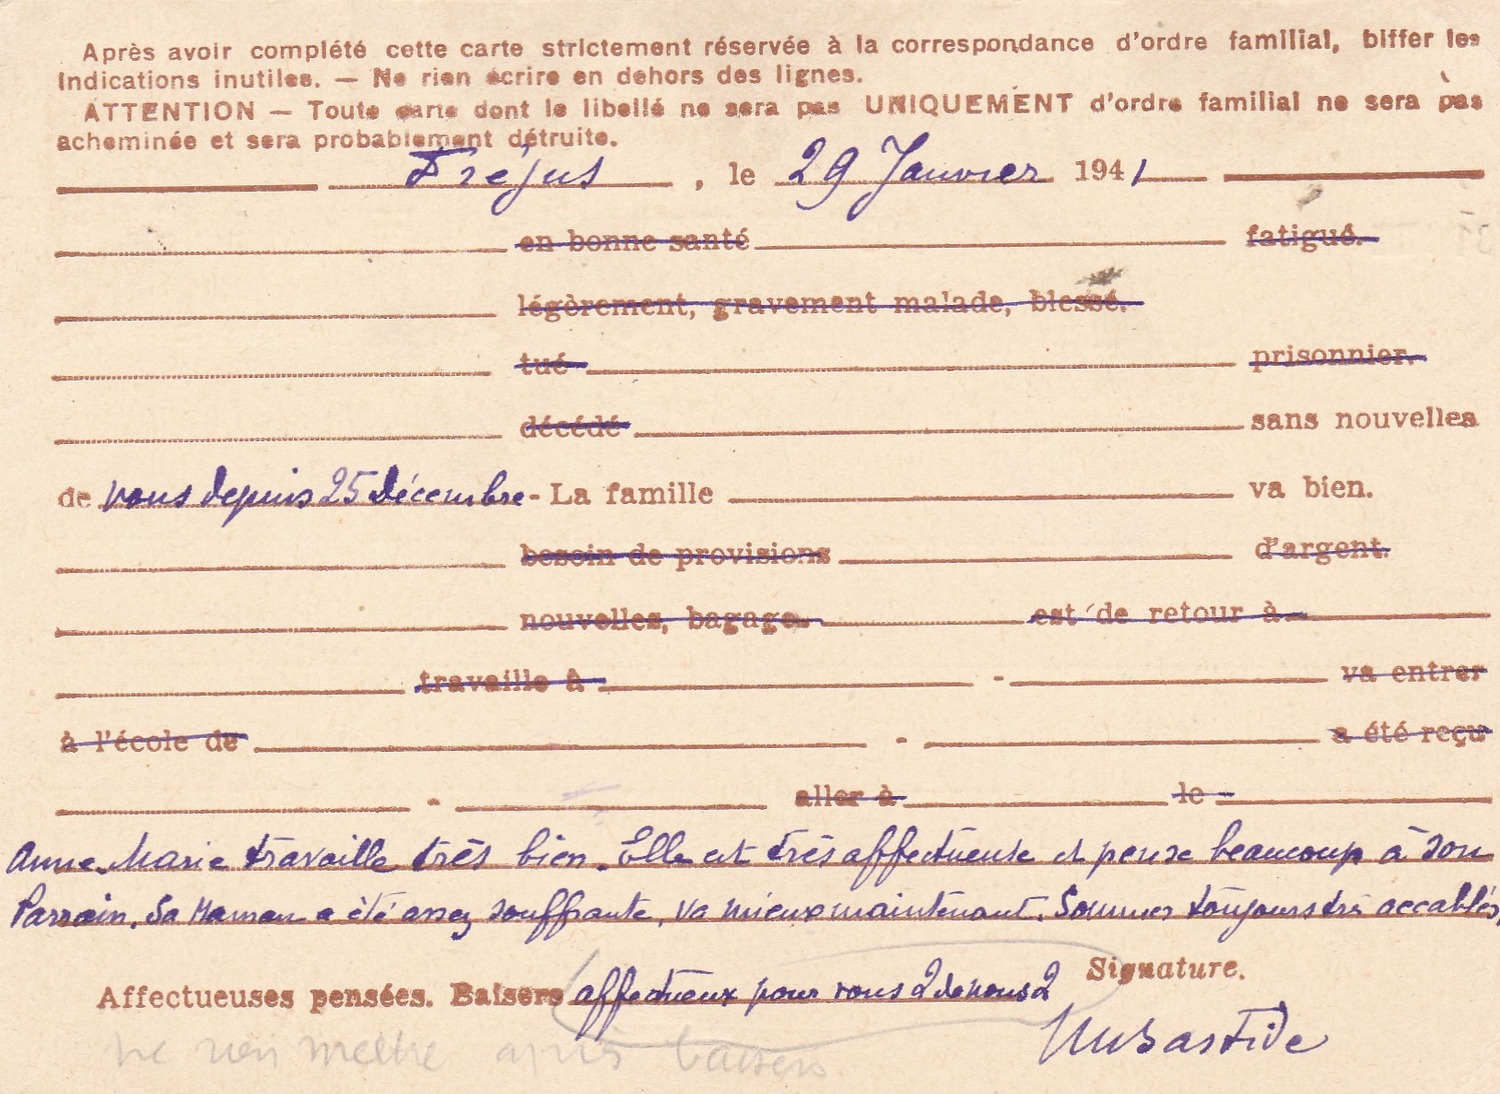 Après avoir complété cette carte strictement réservée à la correspondance d'ordre familial, biffer les
indications inutiles. — Ne rien écrire en dehors des lignes.
ATTENTION — Toute carte dont le libellé ne sera pas UNIQUEMENT d'ordre familial ne sera pas
acheminée et sera probablement détruite.
Fréjus, le 29 Janvier 1941
en bonne santé fatigué.
légèrement, gravement malade, blessé.
tué prisonnier.
décédé sans nouvelles
de vous depuis 25 décembre - La famille va bien.
besoin de provisions d'argent.
nouvelles, bagage est de retour à
travaille à - va entrer
à l'école de - a été reçu
- aller à le
Anne Marie travaille très bien. Elle est très affectueuse et pense beaucoup à son
Parrain. Sa Maman a été assez souffrante, va mieux maintenant. Sommes toujours très accablés,
Affectueuses pensées. Baisers affectueux pour vous 2 de nous 2 Signature.
Bastide
ne rien mettre après baisers